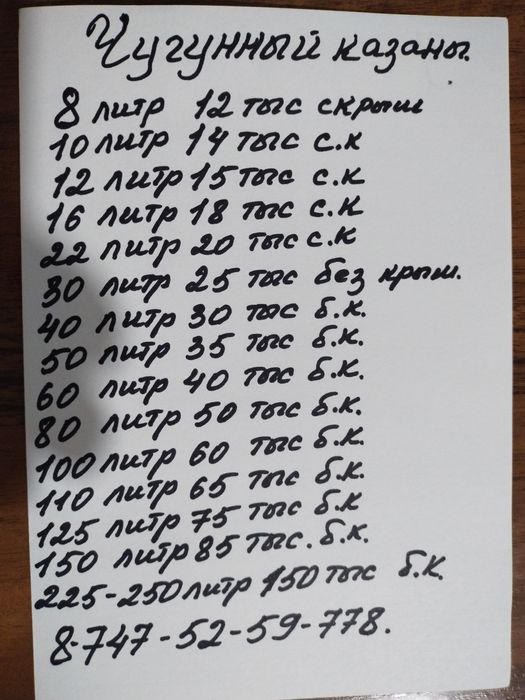 Чугунный казаны.
8 литр 12 тыс скрыш
10 литр 14 тыс с.к
12 литр 15 тыс с.к
16 литр 18 тыс с.к
22 литр 20 тыс с.к
30 литр 25 тыс без крыш.
40 литр 30 тыс б.к.
50 литр 35 тыс б.к.
60 литр 40 тыс б.к.
80 литр 50 тыс б.к.
100 литр 60 тыс б.к.
110 литр 65 тыс б.к.
125 литр 75 тыс б.к
150 литр 85 тыс. б.к.
225-250 литр 150 тыс б.к.
8-747-52-59-778.